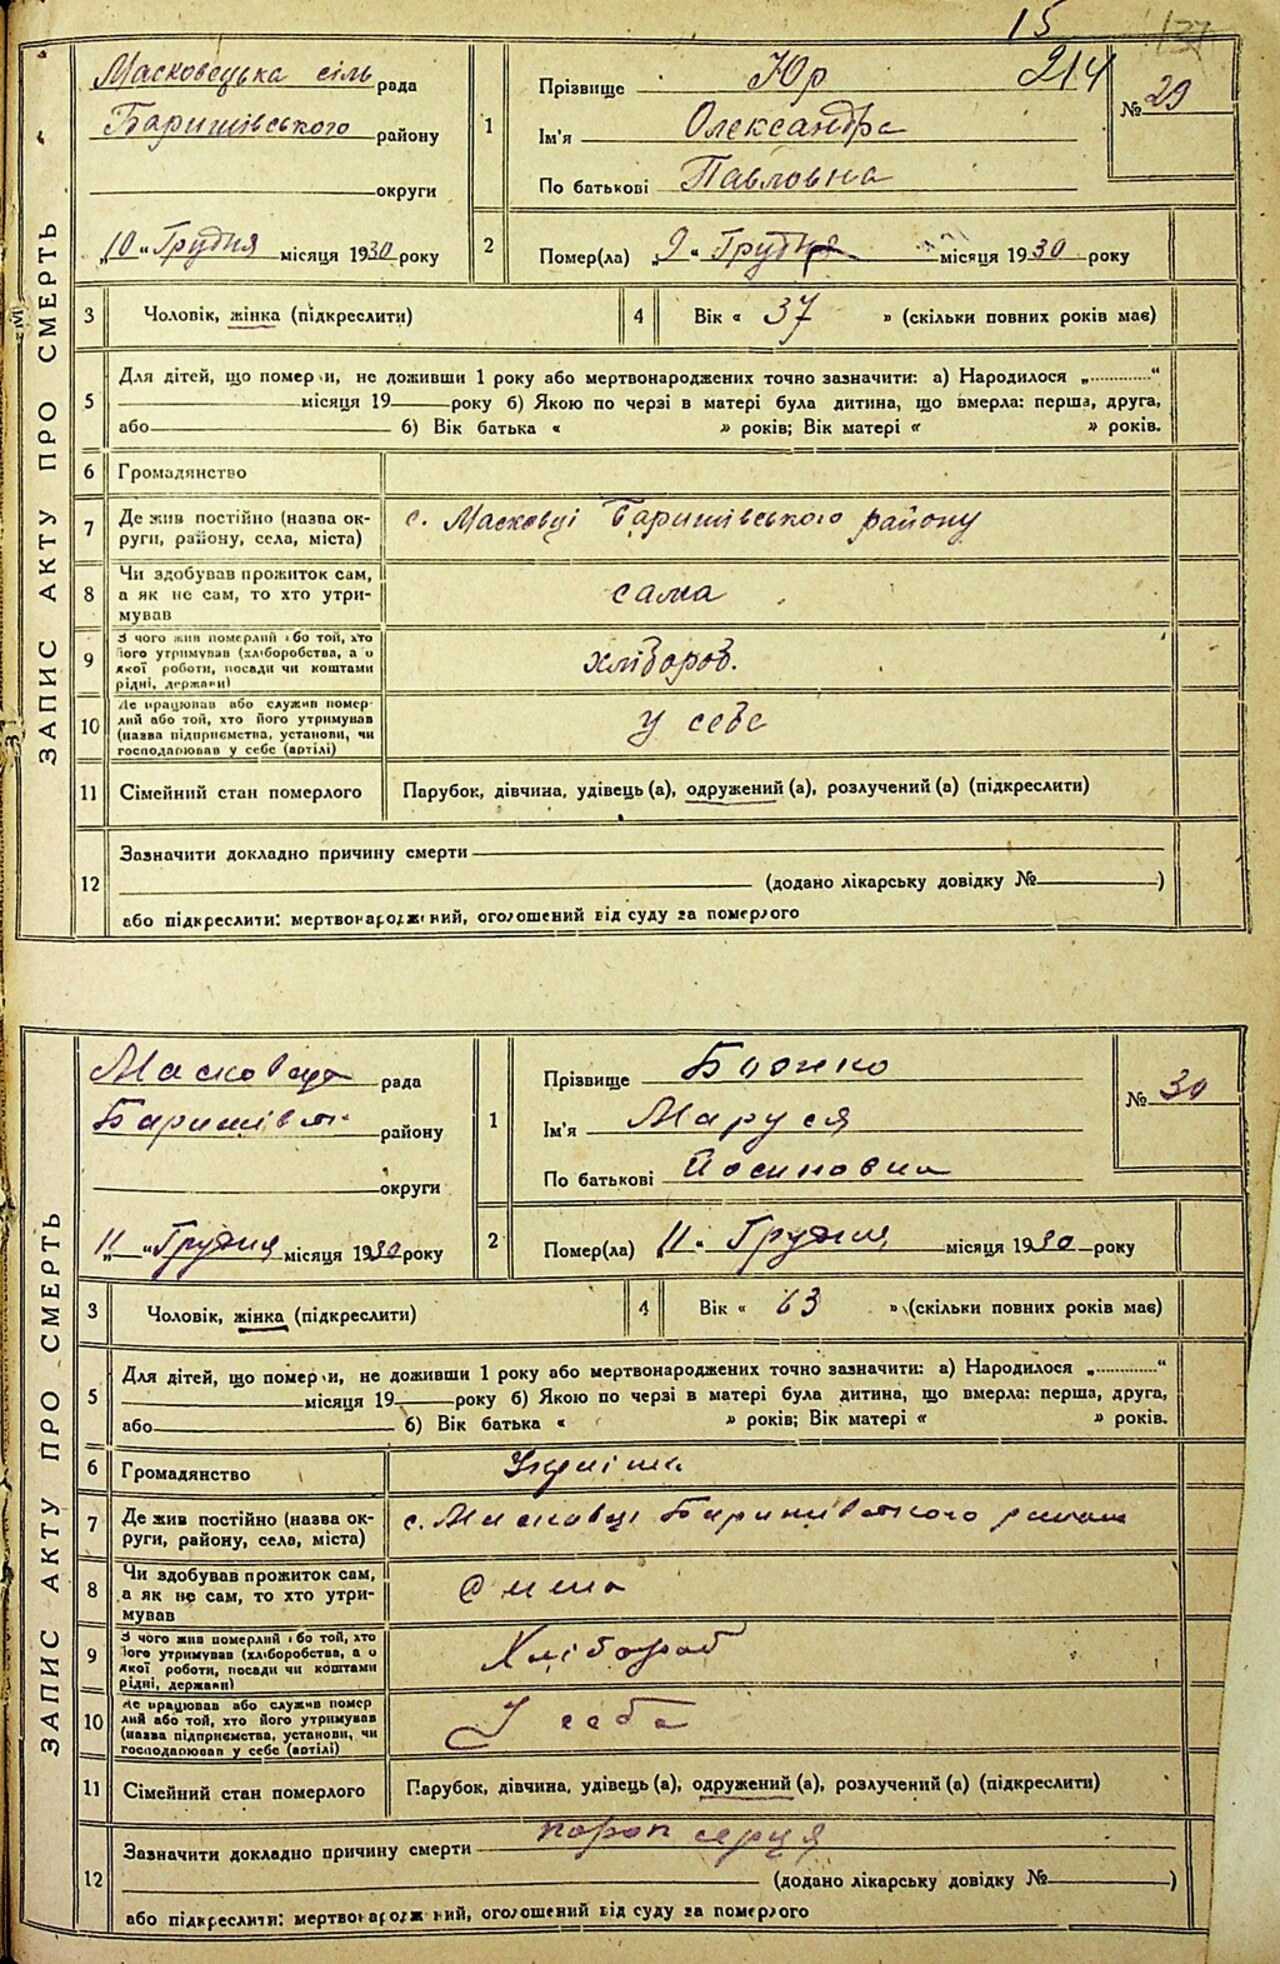 15 137
ЗАПИС АКТУ ПРО СМЕРТЬ
Масковецька сіль рада
Баришівського району
округи
„10“ Грудня місяця 1930 року
1
Прізвище Юр 214
Ім'я Олександра
По батькові Павловна
№ 29
2
Помер(ла) „9“ Грудня місяця 1930 року
3 Чоловік, жінка (підкреслити)
4 Вік « 37 » (скільки повних років має)
5
Для дітей, що померли, не доживши 1 року або мертвонароджених точно зазначити: а) Народилося „............“
місяця 19 року б) Якою по черзі в матері була дитина, що вмерла: перша, друга,
або б) Вік батька « » років; Вік матері « » років.
6 Громадянство
7 Де жив постійно (назва ок-
руги, району, села, міста)
с. Масковці Баришівського району
8 Чи здобував прожиток сам,
а як не сам, то хто утри-
мував
сама
9 З чого жив померлий або той, хто
його утримував (хліборобства, а о
якої роботи, посади чи коштами
рідні, держави)
хлібороб.
10 Де працював або служив помер-
лий або той, хто його утримував
(назва підприємства, установи, чи
господарював у себе (артілі)
у себе
11 Сімейний стан померлого Парубок, дівчина, удівець (а), одружений (а), розлучений (а) (підкреслити)
12
Зазначити докладно причину смерти
(додано лікарську довідку № )
або підкреслити: мертвонароджений, оголошений від суду за померлого
ЗАПИС АКТУ ПРО СМЕРТЬ
рада
району
округи
„11“ Грудня місяця 1930 року
1
Прізвище
Ім'я Маруся
По батькові Йосиповна
№ 30
2
Помер(ла) „11“ Грудня місяця 1930 року
3 Чоловік, жінка (підкреслити)
4 Вік « 63 » (скільки повних років має)
5
Для дітей, що померли, не доживши 1 року або мертвонароджених точно зазначити: а) Народилося „............“
місяця 19 року б) Якою по черзі в матері була дитина, що вмерла: перша, друга,
або б) Вік батька « » років; Вік матері « » років.
6 Громадянство
7 Де жив постійно (назва ок-
руги, району, села, міста)
с. Масковці Баришівського
8 Чи здобував прожиток сам,
а як не сам, то хто утри-
мував
сама
9 З чого жив померлий або той, хто
його утримував (хліборобства, а о
якої роботи, посади чи коштами
рідні, держави)
Хлібороб
10 Де працював або служив помер
лий або той, хто його утримував
(назва підприємства, установи, чи
господарював у себе (артілі)
У себе
11 Сімейний стан померлого Парубок, дівчина, удівець (а), одружений (а), розлучений (а) (підкреслити)
12
Зазначити докладно причину смерти порок серця
(додано лікарську довідку № )
або підкреслити: мертвонароджений, оголошений від суду за померлого